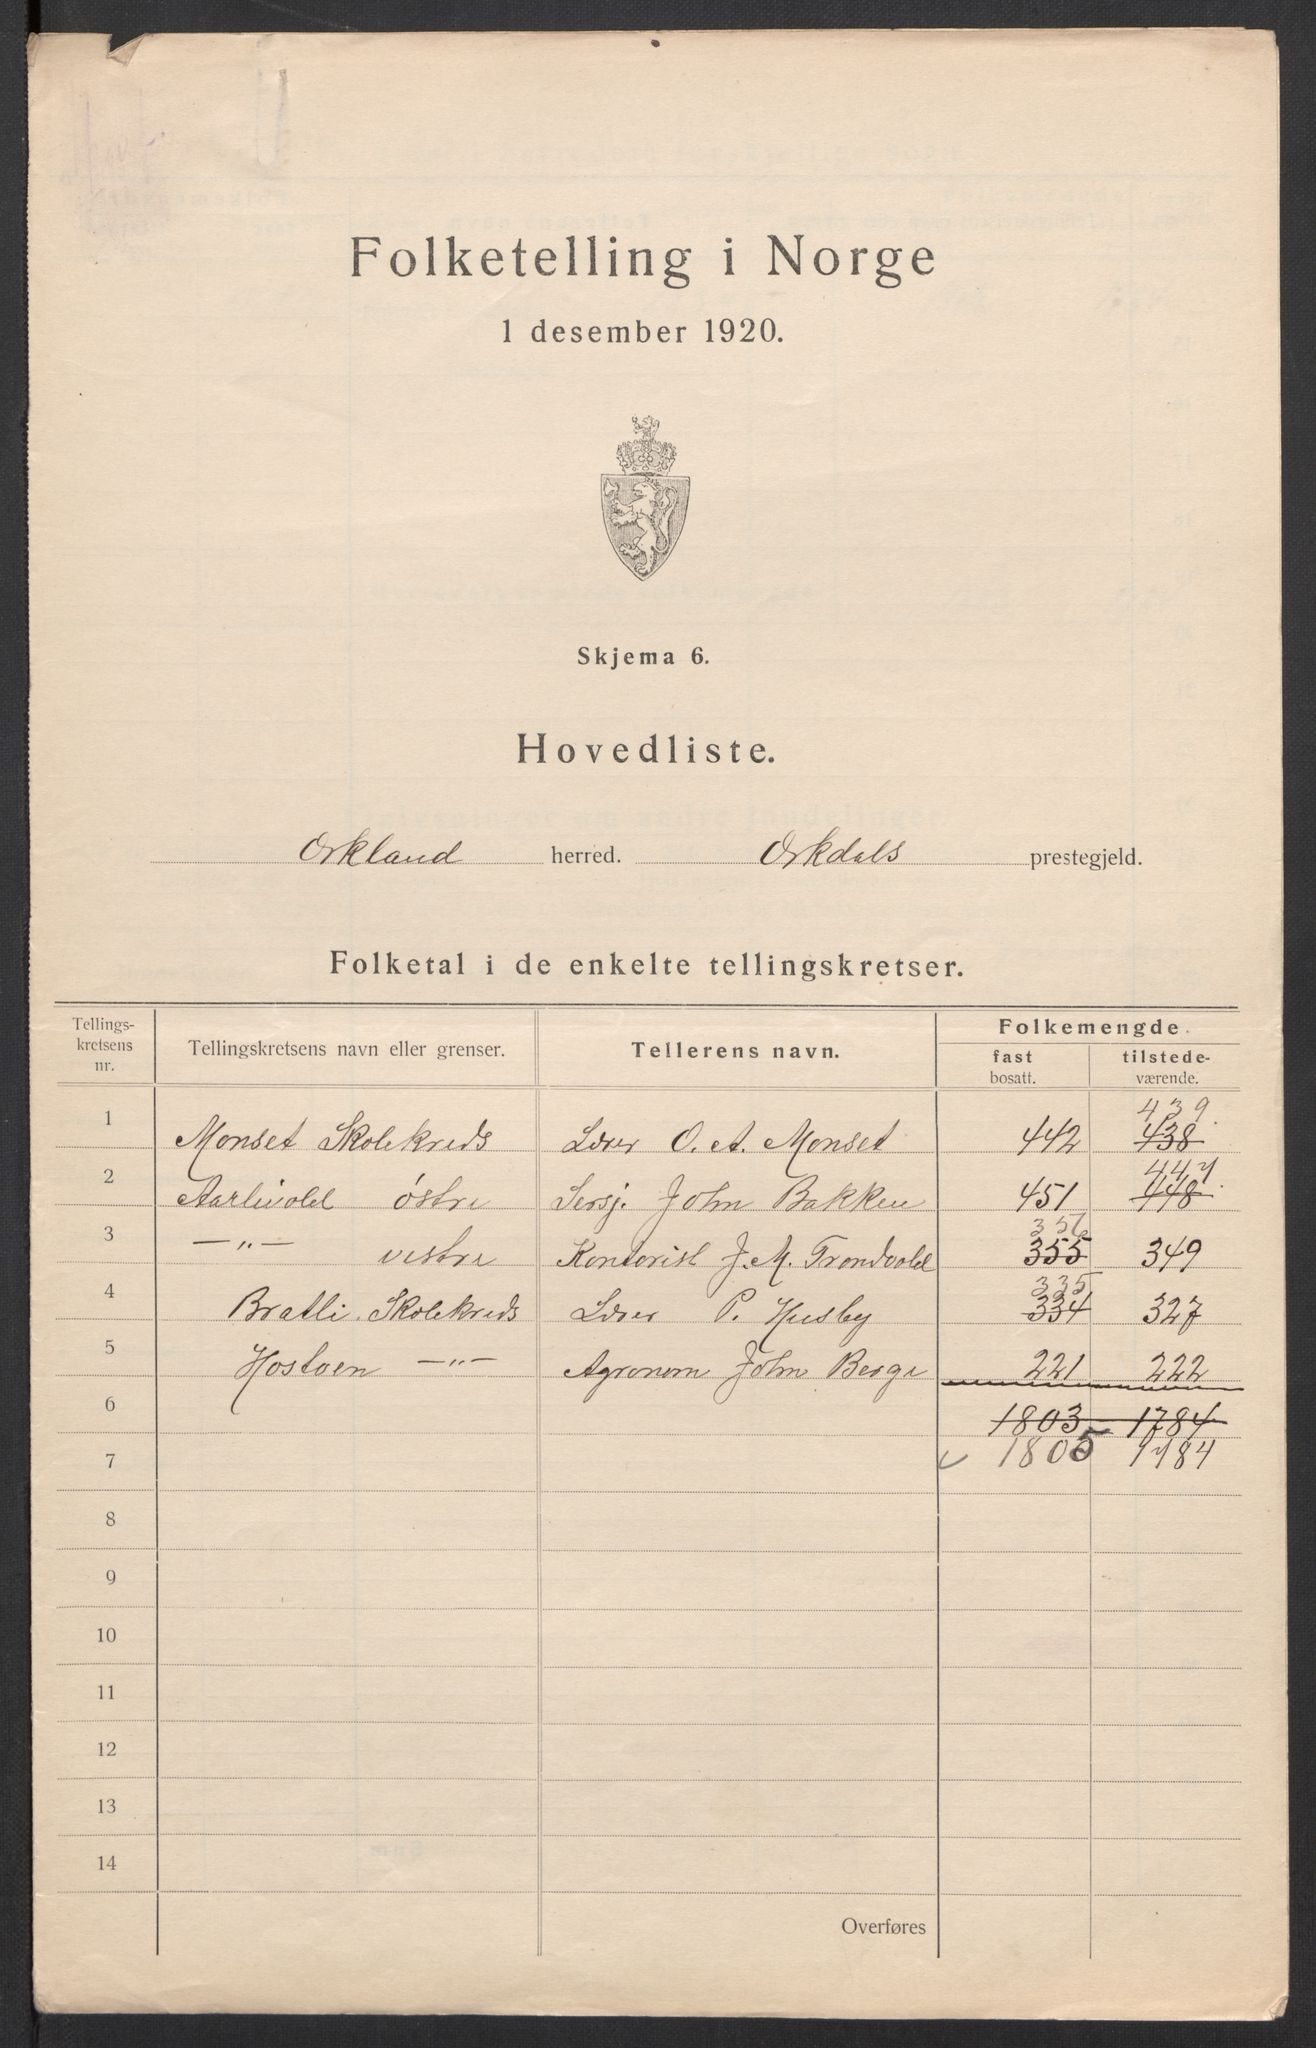 Folketelling i Norge
1 desember 1920.
Skjema 6.
Hovedliste.
Orkland herred. Orkdals prestegjeld.
Folketal i de enkelte tellingskretser.
Tellings-kretsens nr. Tellingskretsens navn eller grenser. Tellerens navn. Folkemengde.
fast bosatt. tilstede-værende.
439
1 Monset Skolekreds Lærer O. A. Monset 442 438
447
2 Aarlivold østre Sersj. John Bakken 451 448
356
3 —"— vestre Kontorist J. M. Trondvold 355 349
335
4 Bratli Skolekreds Lærer P. Husby 334 327
5 Hostoen —"— Agronom John Berge 221 222
6 1803 - 1784
7 1805 1784
8
9
10
11
12
13
14
Overføres